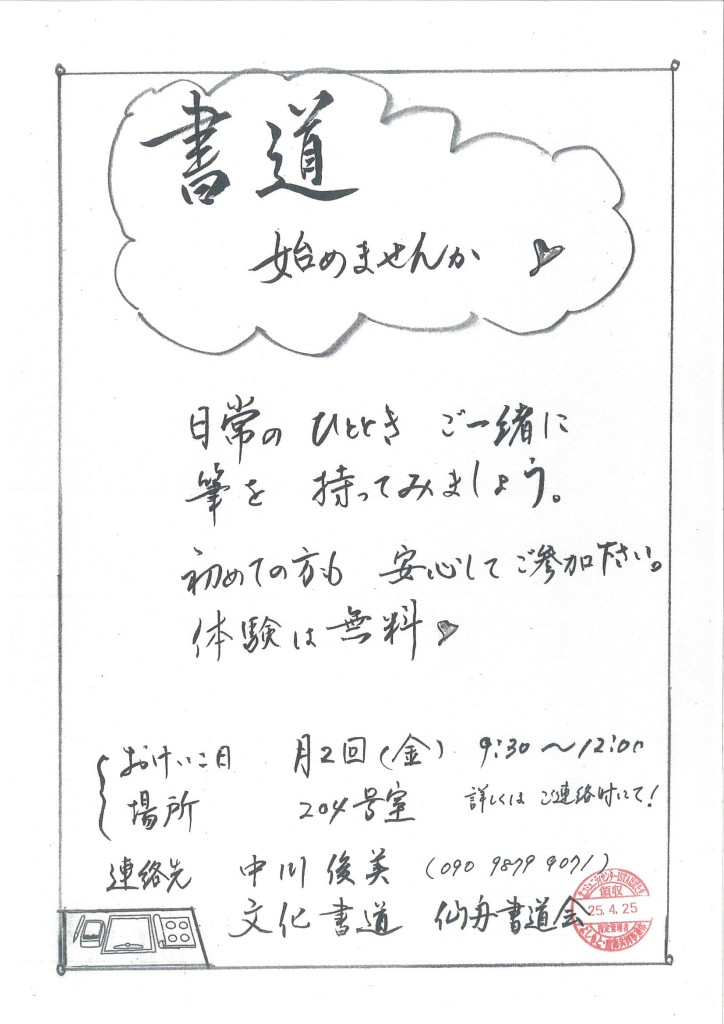 書道
始めませんか
日常の ひととき ご一緒に
筆を 持ってみましょう。
初めての方も 安心して ご参加下さい。
体験は無料
おけいこ日 月2回(金) 9:30〜12:00
場所 204号室 詳しくは ご連絡時にて!
連絡先 中川 俊美 (090 9879 9071)
文化書道 仙舟書道会
領収
25.4.25
指定管理者